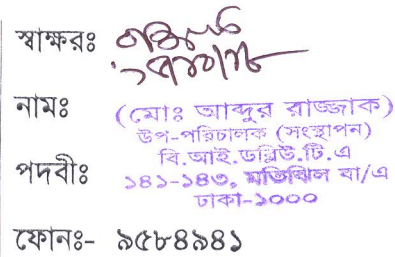 স্বাক্ষরঃ
নামঃ (মোঃ আব্দুর রাজ্জাক)
উপ-পরিচালক (সংস্থাপন)
বি.আই.ডব্লিউ.টি.এ
পদবীঃ ১৪১-১৪৩, মতিঝিল বা/এ
ঢাকা-১০০০
ফোনঃ- ৯৫৮৪৯৪১